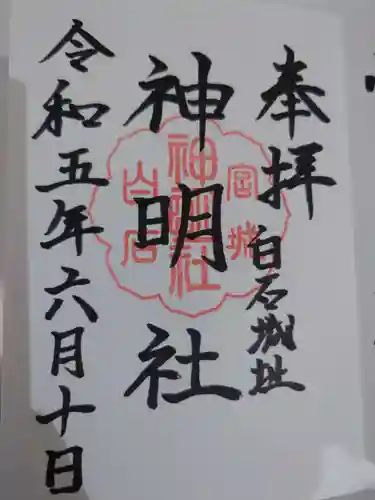 奉拝
白石城址
神明社
令和五年六月十日
宮城
神明社
白石